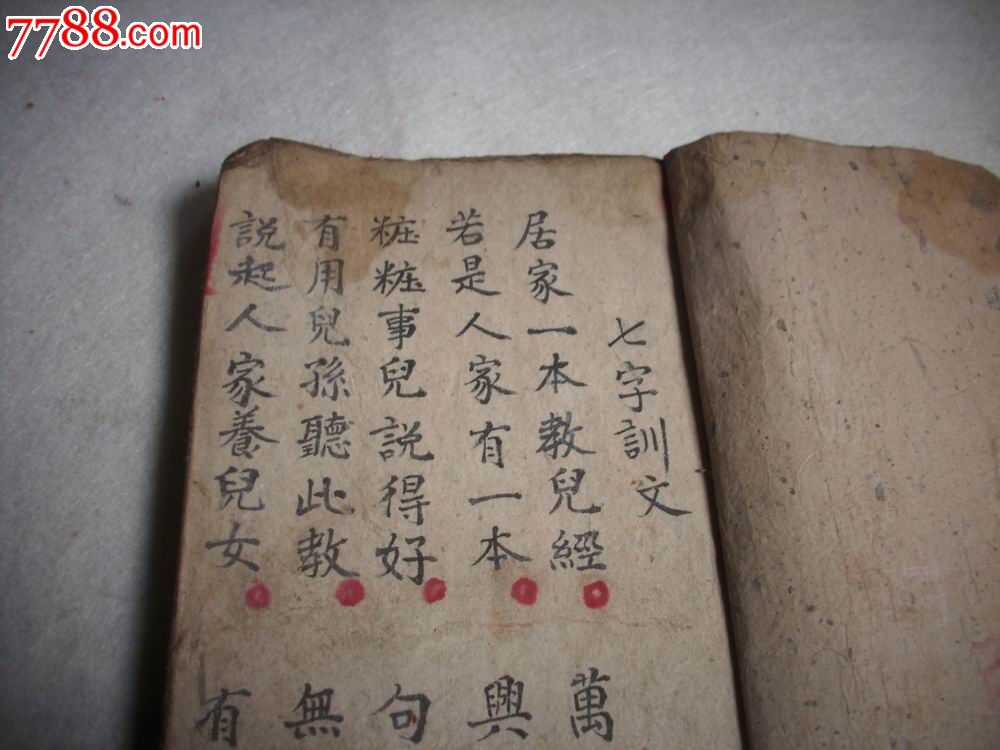 7788.com
七字訓文
居家一本教兒經 萬
若是人家有一本 興
粧粧事兒說得好 句
有用兒孫聽此教 無
說起人家養兒女 有